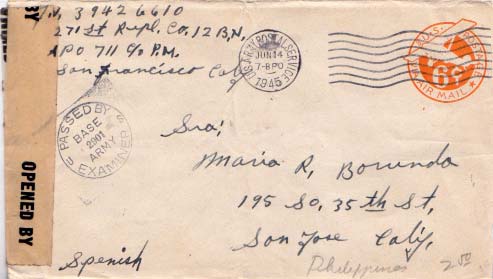 39426610
271st Repl. Co, 12 BN,
APO 711 c/o P.M.
San Francisco Calif
U.S. ARMY POSTAL SERVICE
JUN 14
7-8 PM
1945
U.S. POSTAGE
6¢
VIA AIR MAIL
PASSED BY
BASE
2001
ARMY
EXAMINER
OPENED BY
Sra;
Maria R, Borunda
195 So, 35th St,
San Jose Calif,
Spanish
Philippines 2.50